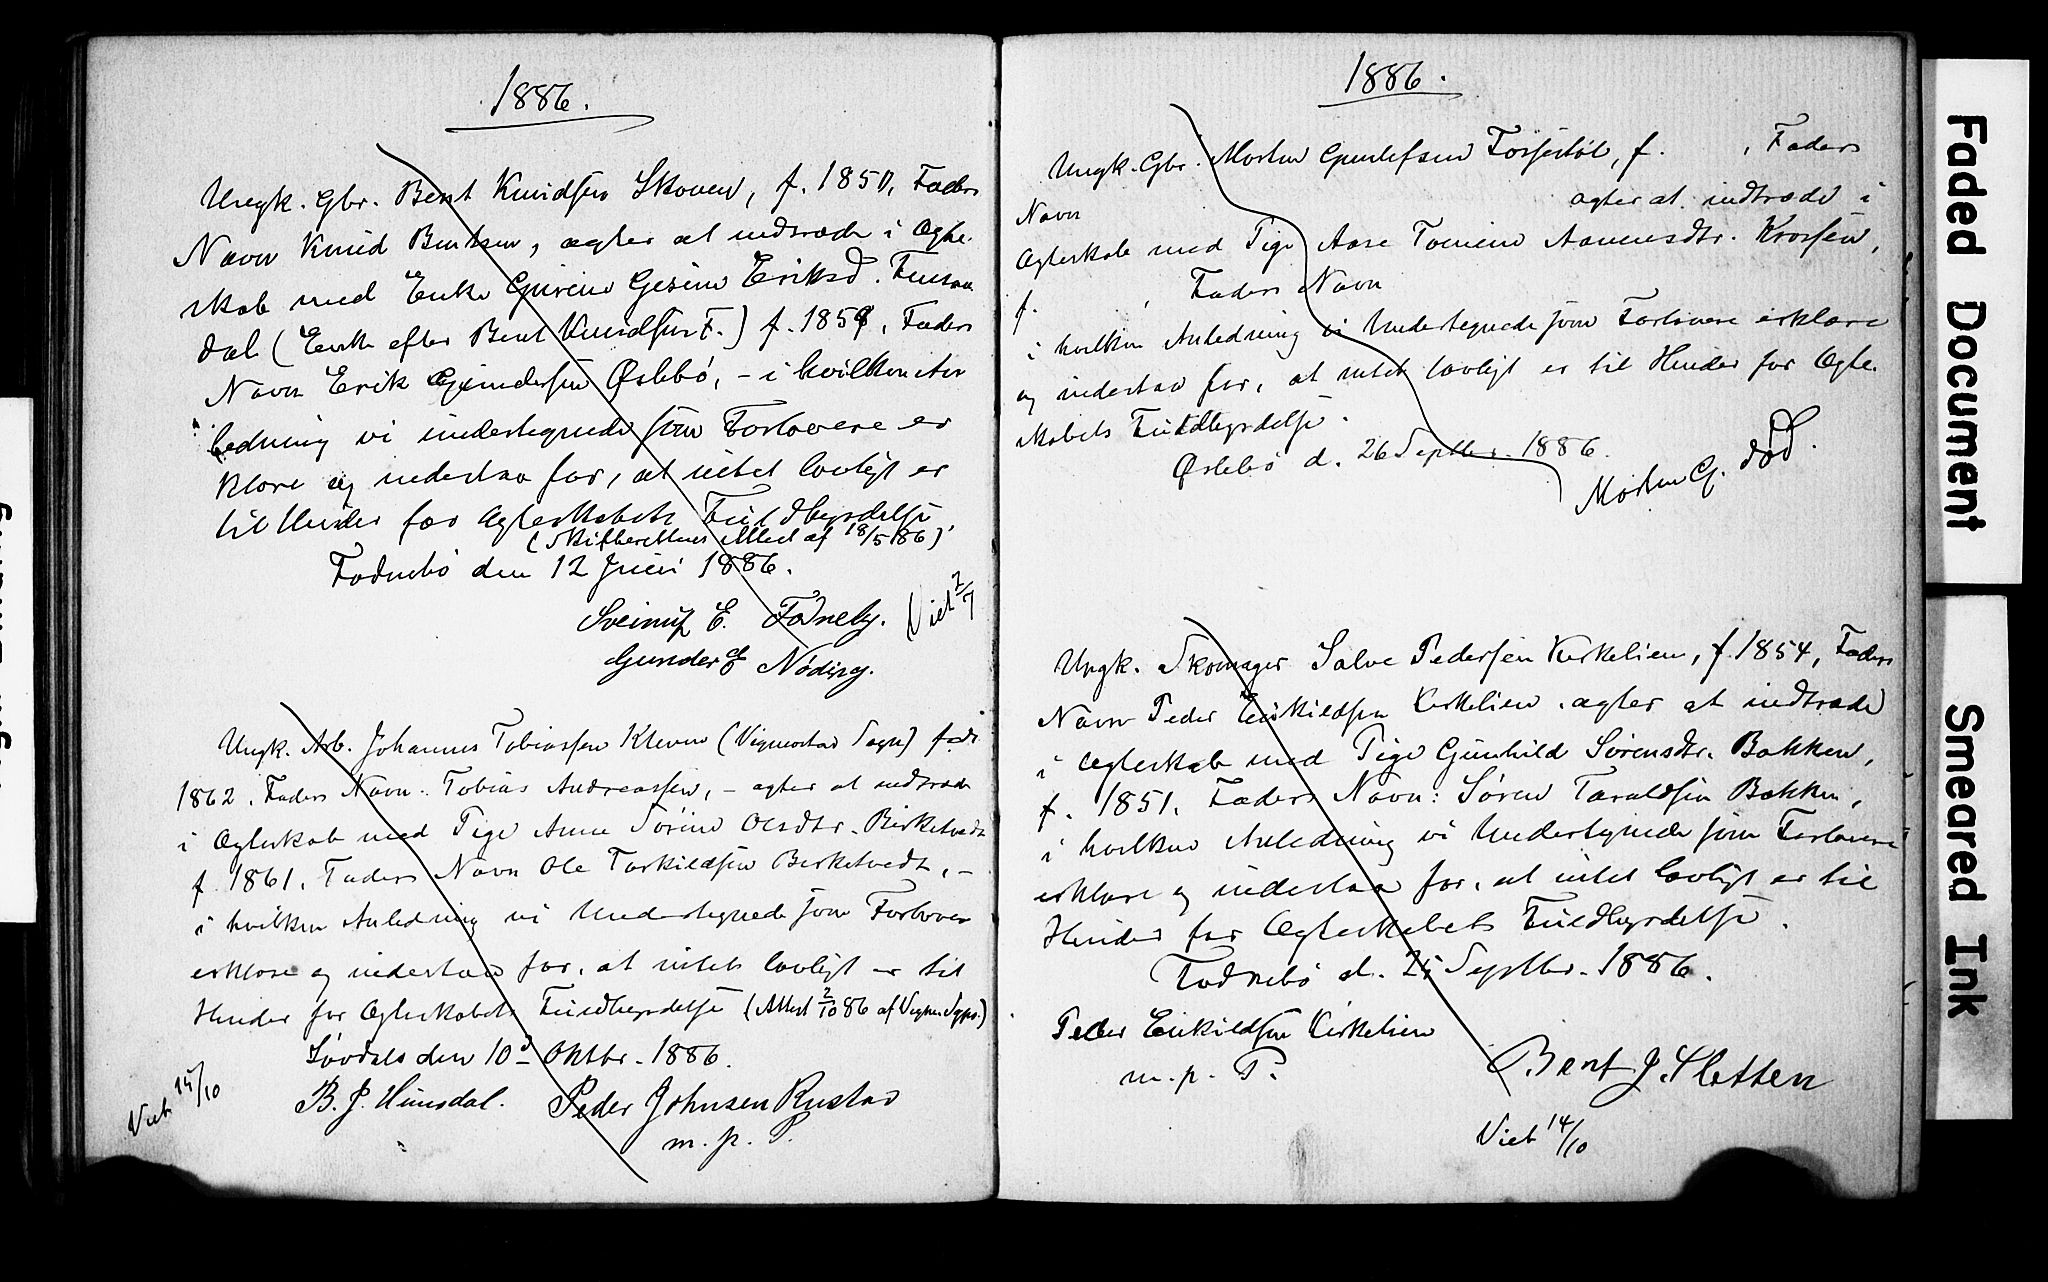 1886.
Ungk. Gbr. Bent Knudsen Skouen, f. 1850, Faders
Navn Knud Bentsen, agter at indtræde i Ægte-
skab med Enke Gurine Gesine Eriksd. Finsaa
dal (Enke efter Bent Knudsen F.) f. 1859, Faders
Navn Erik Gundersen Øslebö, - i hvilken An
ledning vi undertegnede som Forlovere er
klære og indestaa for, at intet lovligt er
til Hinder for Ægteskabets Fuldbyrdelse
(Skifterettens Attest af 18/5 86).
Fodnebö den 12 Juni 1886.
Sveinuf E. Fodneby. Viet 2/7
Gunder Nöding.
Ungk. Arb. Johannes Tobiassen Kleven (Vigmostad Sogn) föd
1862, Faders Navn: Tobias Andreassen, - agter at indtræde
i Ægteskab med Pige Anne Sörine Olsdtr. Birketvedt
f. 1861, Faders Navn Ole Torkildsen Birketvedt, -
i hvilken Anledning vi Undertegnede som Forlover
erklære og indestaa for, at intet lovligt er til
Hinder for Ægteskabets Fuldbyrdelse (Attest 2/10 86 af Vigm. Sgpr.)
Lövdals den 10d Oktbr. 1886.
B. J. Hunsdal. Peder Johnsen Rustad
m. p. P.
Viet 15/10
1886.
Ungk. Gbr. Morten Gunlefsen Tossestöl, f. , Faders
Navn agter at indtræde i
Ægteskab med Pige Aase Tomine Aanensdtr. Krossen,
f. , Faders Navn
i hvilken Anledning vi Undertegnede som Forlovere erklære
og indestaa for, at intet lovligt er til Hinder for Ægte-
skabets Fuldbyrdelse.
Øslebö d. 26 Septbr. 1886.
Morten G. död.
Ungk. Skomager Salve Pedersen Kirkelien, f. 1854, Faders
Navn Peder Enkildsen Kirkelien, agter at indtræde
i Ægteskab med Pige Gunhild Sörensdtr. Bakken,
f. 1851, Faders Navn: Sören Taraldsen Bakken,
i hvilken Anledning vi Undertegnede som Forlovere
erklære og indestaa for, at intet lovligt er til
Hinder for Ægteskabets Fuldbyrdelse.
Fodnebö d. 25 Septbr. 1886.
Peder Enkildsen Kirkelien
m. p. P.
Bent J. Sletten
Viet 14/10
Faded Document
Smeared Ink